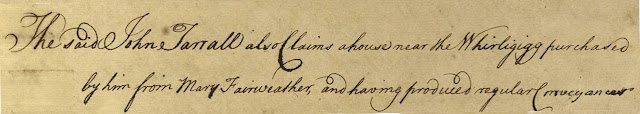 The said John Tarrall also Claims a house near the Whirligigg purchased
by him from Mary Fairweather, and having produced regular Conveyances